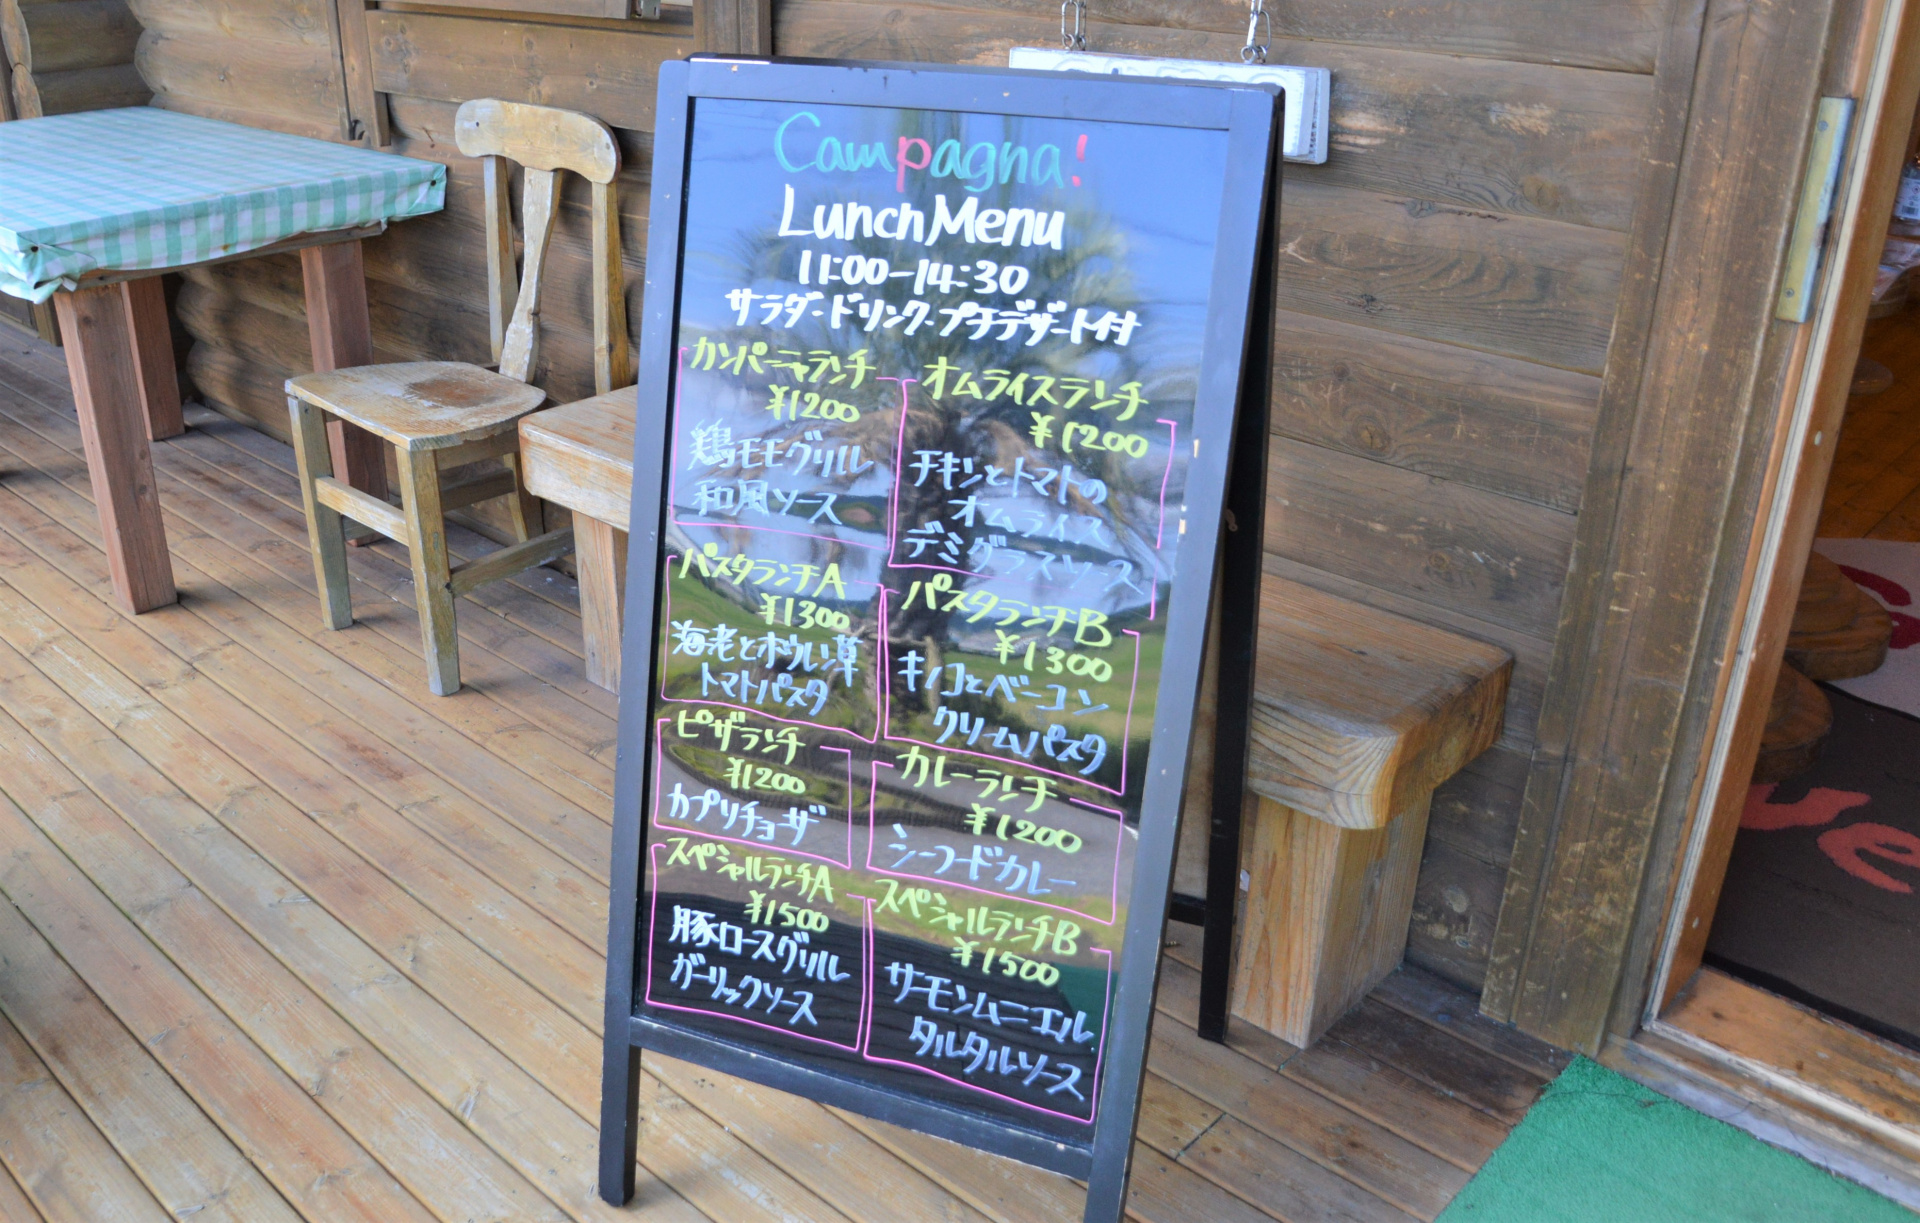 Campagna!
Lunch Menu
11:00-14:30
サラダ・ドリンク・プチデザート付
カンパーニャランチ
¥1200
鶏モモグリル
和風ソース
オムライスランチ
¥1200
チキンとトマトの
オムライス
デミグラスソース
パスタランチA
¥1300
海老とホウレン草
トマトパスタ
パスタランチB
¥1300
キノコとベーコン
クリームパスタ
ピザランチ
¥1200
カプリチョーザ
カレーランチ
¥1200
シーフードカレー
スペシャルランチA
¥1500
豚ロースグリル
ガーリックソース
スペシャルランチB
¥1500
サーモンムニエル
タルタルソース